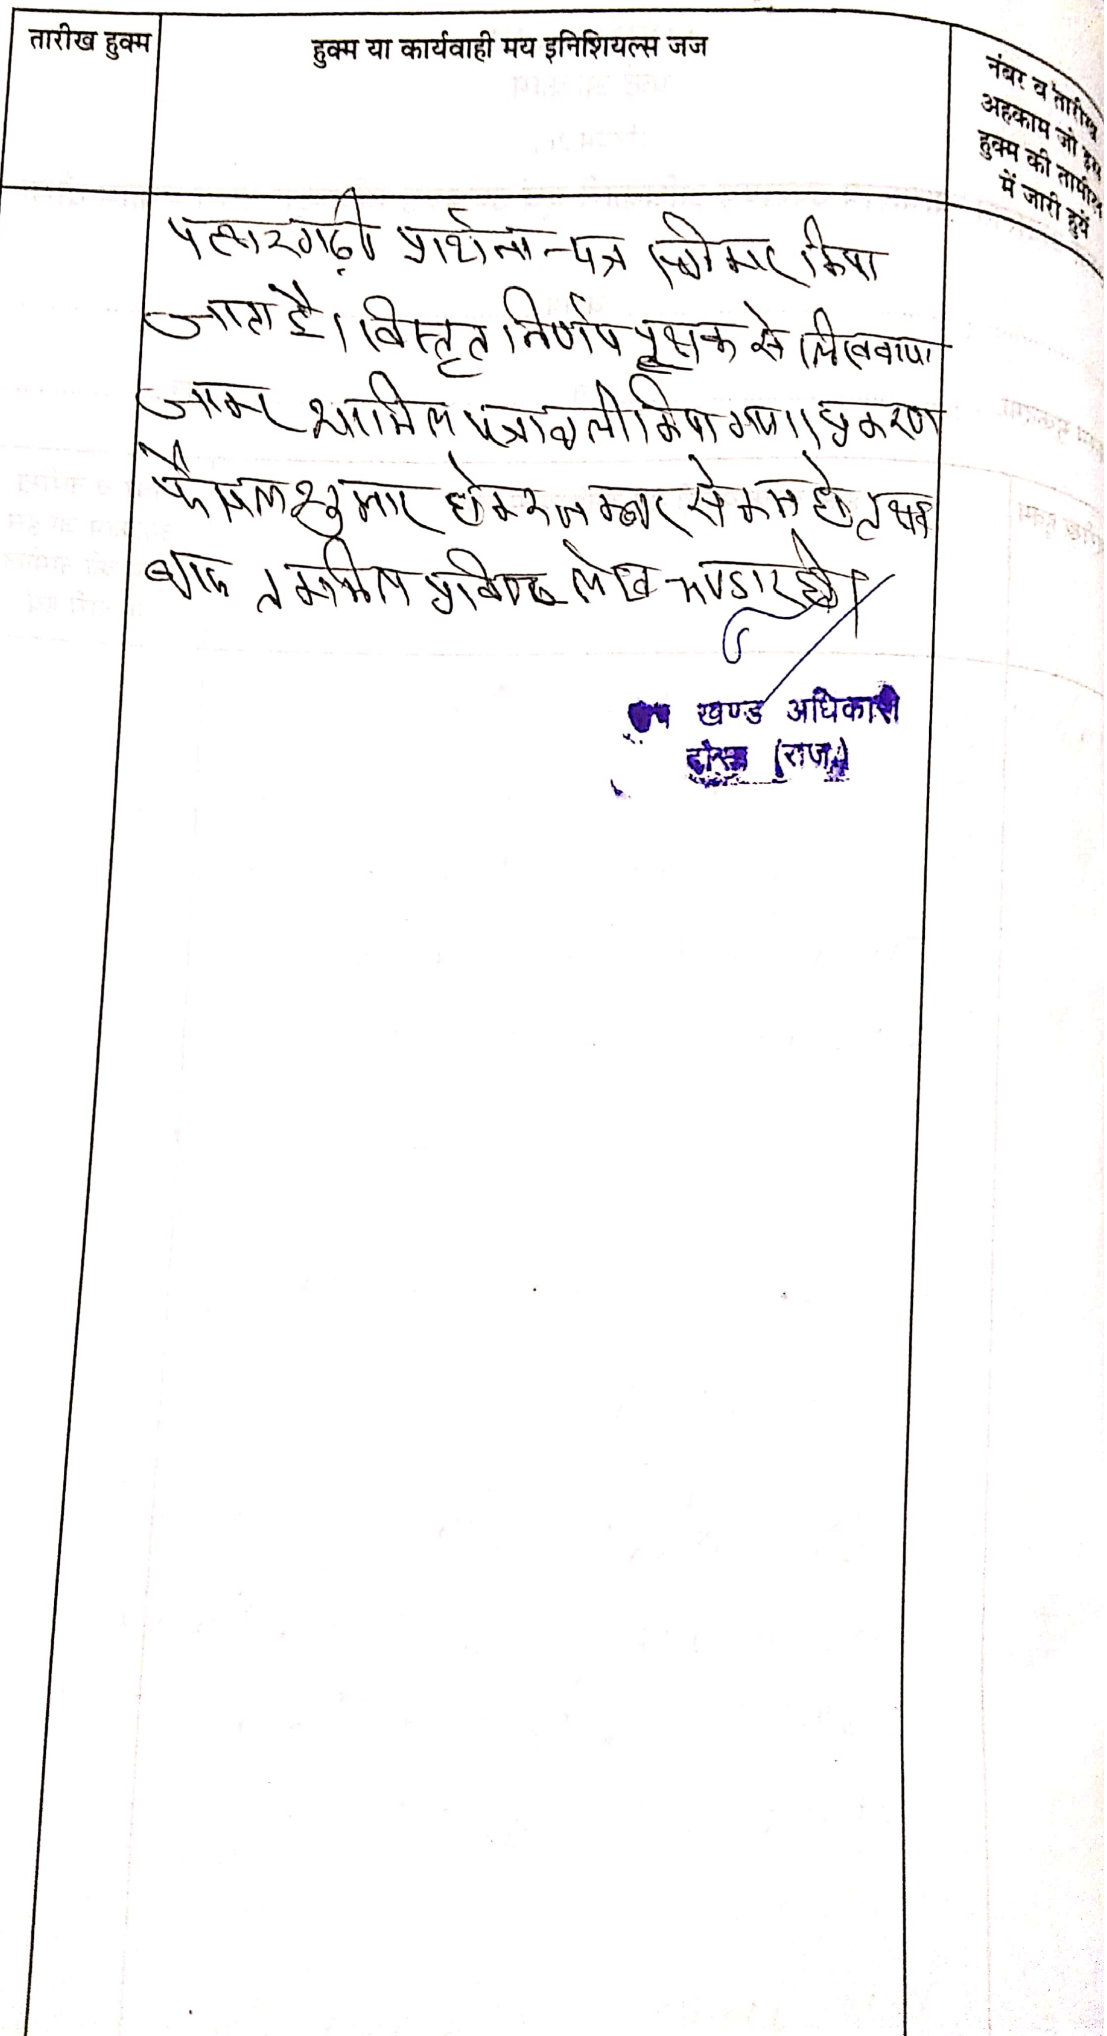 तारीख हुक्म
हुक्म या कार्यवाही मय इनिशियल्स जज
नंबर व तारीख
अहकाम जो इस
हुक्म की तामील
में जारी हुये
पत्थरगढ़ी प्रार्थना-पत्र स्वीकार किया
जाता है। विस्तृत निर्णय पृथक से लिखवाया
जाकर शामिल पत्रावली किया गया। प्रकरण
फैसल शुमार होकर नम्बर से कम हो
बाद तकमील प्रविष्ठ लेख भण्डार हो।
उप खण्ड अधिकारी
(राज.)